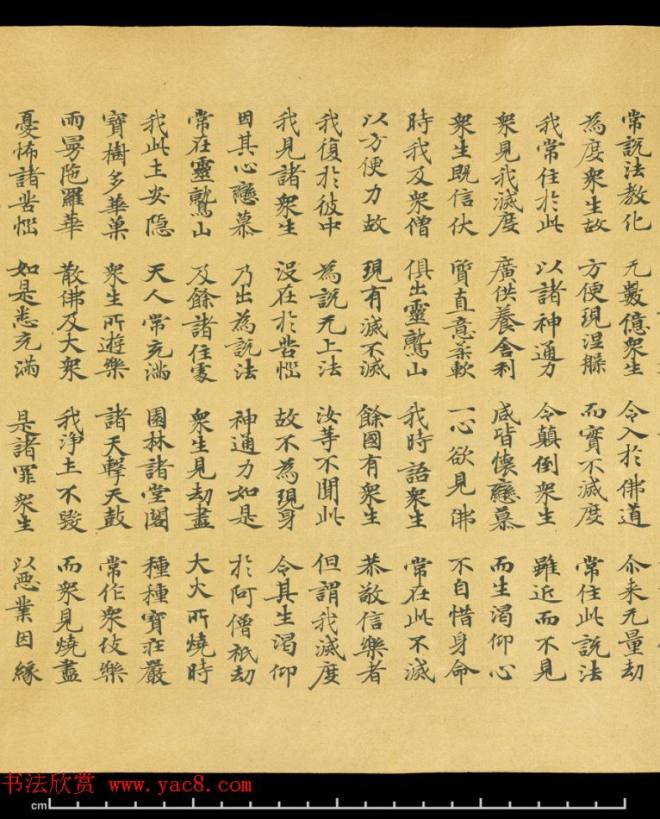 常說法教化 无數億衆生 令入於佛道 尒来无量劫
為度衆生故 方便現涅槃 而實不滅度 常住此說法
我常住於此 以諸神通力 令顛倒衆生 雖近而不見
衆見我滅度 廣供養舍利 咸皆懷戀慕 而生渴仰心
衆生既信伏 質直意柔軟 一心欲見佛 不自惜身命
時我及衆僧 俱出靈鷲山 我時語衆生 常在此不滅
以方便力故 現有滅不滅 餘國有衆生 恭敬信樂者
我復於彼中 為說无上法 汝等不聞此 但謂我滅度
我見諸衆生 沒在於苦惱 故不為現身 令其生渴仰
因其心戀慕 乃出為說法 神通力如是 於阿僧祇劫
常在靈鷲山 及餘諸住處 衆生見劫盡 大火所燒時
我此土安隱 天人常充滿 園林諸堂閣 種種寶莊嚴
寶樹多華菓 衆生所遊樂 諸天擊天鼓 常作衆伎樂
雨曼陁羅華 散佛及大衆 我淨土不毀 而衆見燒盡
憂怖諸苦惱 如是悉充滿 是諸罪衆生 以惡業因緣
书法欣赏 www.yac8.com
cm